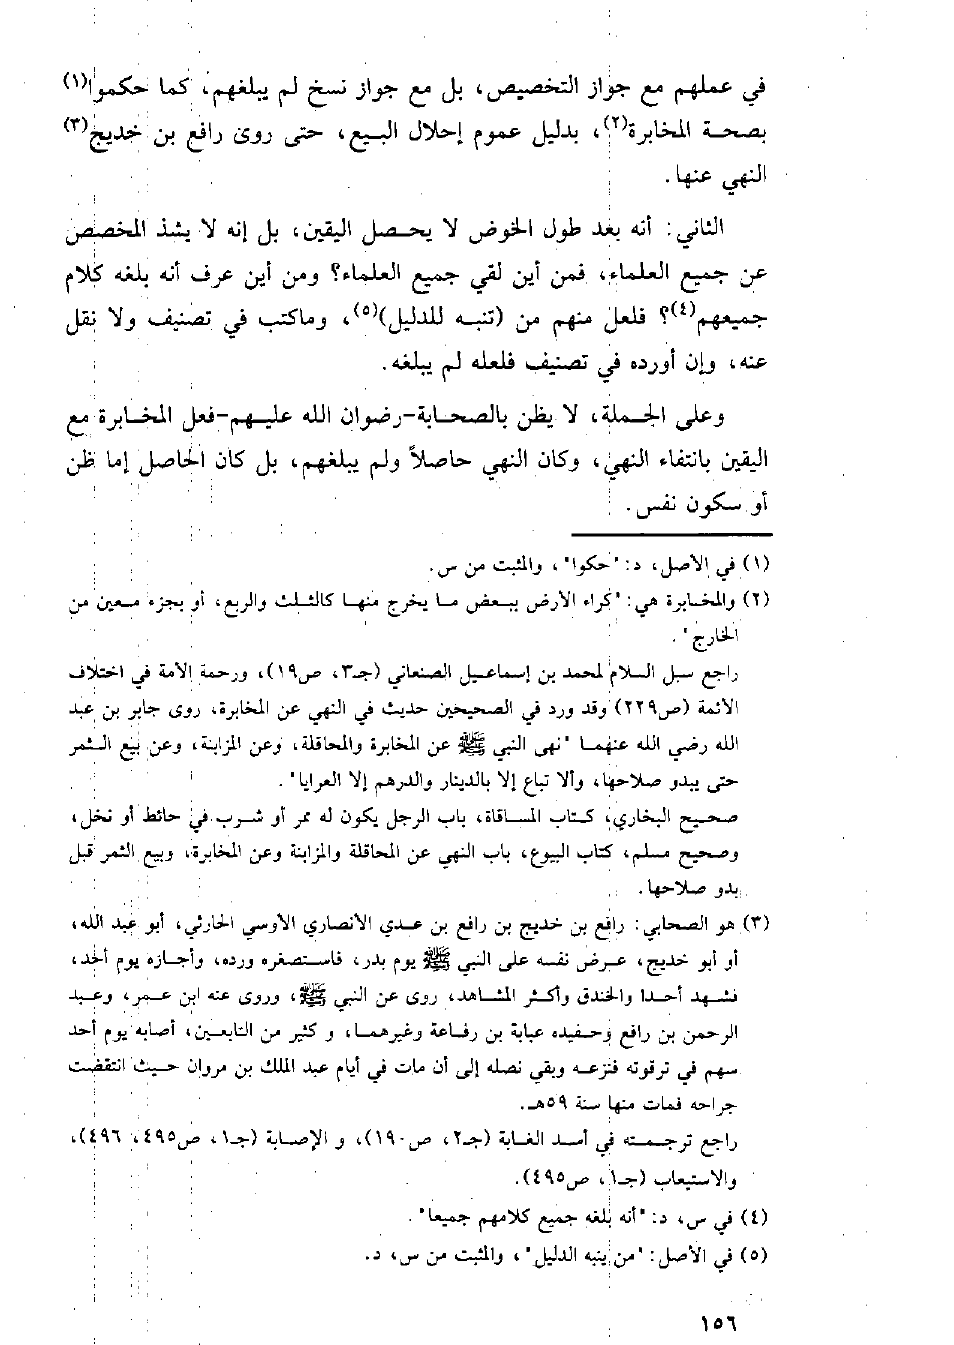 في عملهم مع جواز التخصيص، بل مع جواز نسخ لم يبلغهم، كما حكموا(١)
بصحة المخابرة(٢)، بدليل عموم إحلال البيع، حتى روى رافع بن خديج(٣)
النهي عنها.
الثاني: أنه بعد طول الخوض لا يحصل اليقين، بل إنه لا يشذ المخصص
عن جميع العلماء، فمن أين لقي جميع العلماء؟ ومن أين عرف أنه بلغه كلام
جميعهم(٤)؟ فلعل منهم من (تنبه للدليل)(٥)، وماكتب في تصنيف ولا نقل
عنه، وإن أورده في تصنيف فلعله لم يبلغه.
وعلى الجملة، لا يظن بالصحابة-رضوان الله عليهم-فعل المخابرة مع
اليقين بانتفاء النهي، وكان النهي حاصلاً ولم يبلغهم، بل كان الحاصل إما ظن
أو سكون نفس.
(١) في الأصل، د: "حكوا"، والمثبت من س.
(٢) والمخابرة هي: "كراء الأرض ببعض ما يخرج منها كالثلث والربع، أو بجزء معين من
الخارج".
راجع سبل السلام لمحمد بن إسماعيل الصنعاني (جـ٣، ص١٩)، ورحمة الأمة في اختلاف
الأئمة (ص٢٢٩) وقد ورد في الصحيحين حديث في النهي عن المخابرة، روى جابر بن عبد
الله رضي الله عنهما "نهى النبي ﷺ عن المخابرة والمحاقلة، وعن المزابنة، وعن بيع الثمر
حتى يبدو صلاحها، وألا تباع إلا بالدينار والدرهم إلا العرايا".
صحيح البخاري، كتاب المساقاة، باب الرجل يكون له ممر أو شرب في حائط أو نخل،
وصحيح مسلم، كتاب البيوع، باب النهي عن المحاقلة والمزابنة وعن المخابرة، وبيع الثمر قبل
بدو صلاحها.
(٣) هو الصحابي: رافع بن خديج بن رافع بن عدي الأنصاري الأوسي الحارثي، أبو عبد الله،
أو أبو خديج، عرض نفسه على النبي ﷺ يوم بدر، فاستصغره ورده، وأجازه يوم أحد،
فشهد أحدا والخندق وأكثر المشاهد، روى عن النبي ﷺ، وروى عنه ابن عمر، وعبد
الرحمن بن رافع وحفيده عباية بن رفاعة وغيرهما، و كثير من التابعين، أصابه يوم أحد
سهم في ترقوته فنزعه وبقي نصله إلى أن مات في أيام عبد الملك بن مروان حيث انتقضت
جراحه فمات منها سنة ٥٩هـ.
راجع ترجمته في أسد الغابة (جـ٢، ص١٩٠)، و الإصابة (جـ١، ص٤٩٥، ٤٩٦)،
والاستيعاب (جـ١، ص٤٩٥).
(٤) في س، د: "أنه بلغه جميع كلامهم جميعا".
(٥) في الأصل: "من ينبه الدليل"، والمثبت من س، د.
١٥٦